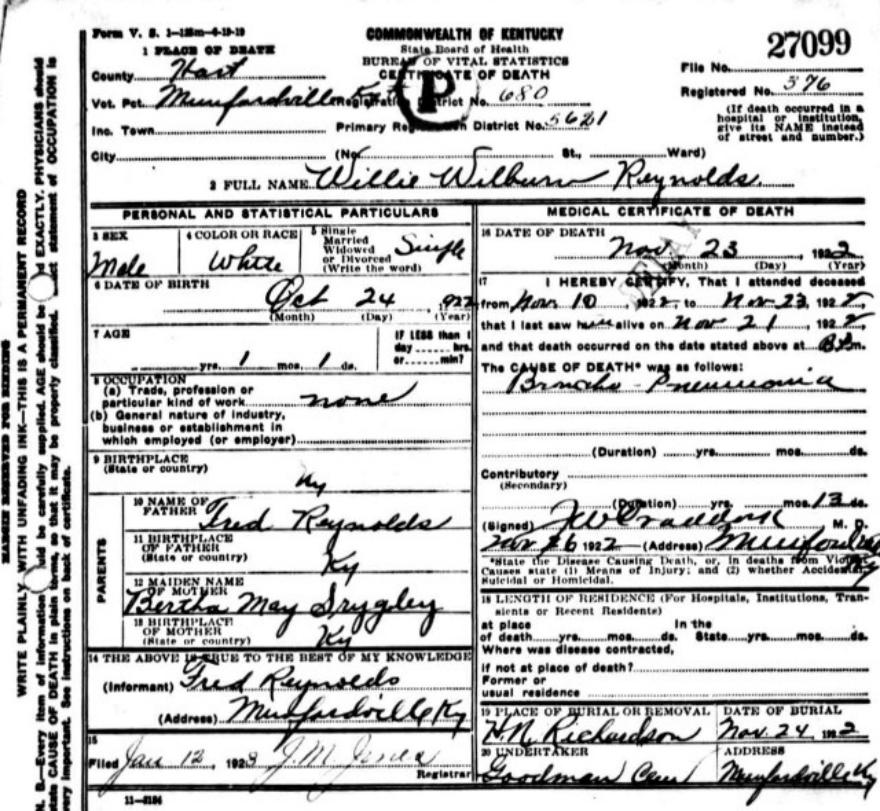 Form V. S. 1-125m-4-19-19
COMMONWEALTH OF KENTUCKY
State Board of Health
BUREAU OF VITAL STATISTICS
CERTIFICATE OF DEATH
27099
File No.
Registered No. 376
(If death occurred in a
hospital or institution,
give its NAME instead
of street and number.)
1 PLACE OF DEATH
County Hart
Vot. Pct. Munfordville Ky Registration District No. 680
P
Inc. Town Primary Registration District No. 5621
City (No. St., Ward)
2 FULL NAME Willie Wilburn Reynolds.
PERSONAL AND STATISTICAL PARTICULARS
3 SEX
Male
4 COLOR OR RACE
White
5 Single
Married
Widowed
or Divorced
(Write the word)
Single
6 DATE OF BIRTH
Oct 24, 1922
(Month) (Day) (Year)
7 AGE
yrs. 1 mos. 1 ds.
IF LESS than 1
day hrs.
or min?
8 OCCUPATION
(a) Trade, profession or
particular kind of work none
(b) General nature of industry,
business or establishment in
which employed (or employer)
9 BIRTHPLACE
(State or country)
Ky
PARENTS
10 NAME OF
FATHER Fred Reynolds
11 BIRTHPLACE
OF FATHER
(State or country) Ky
12 MAIDEN NAME
OF MOTHER
Bertha May Srygley
13 BIRTHPLACE
OF MOTHER
(State or country) Ky
14 THE ABOVE IS TRUE TO THE BEST OF MY KNOWLEDGE
(Informant) Fred Reynolds
(Address) Munfordville Ky
15
Filed Jan 12, 1923 J.M. Jones
Registrar
11-3184
MEDICAL CERTIFICATE OF DEATH
16 DATE OF DEATH
Nov 23, 1922
(Month) (Day) (Year)
DELAY
17 I HEREBY CERTIFY, That I attended deceased
from Nov 10, 1922, to Nov 23, 1922,
that I last saw him alive on Nov 21, 1922,
and that death occurred on the date stated above at m.
The CAUSE OF DEATH* was as follows:
Broncho-Pneumonia
(Duration) yrs. mos. ds.
Contributory
(Secondary)
(Duration) yrs. mos. 13 ds.
(Signed) J W Craddock M. D.
Nov 26 1922 (Address) Munfordville Ky
*State the Disease Causing Death, or, in deaths from Violent
Causes state (1) Means of Injury; and (2) whether Accidental,
Suicidal or Homicidal.
18 LENGTH OF RESIDENCE (For Hospitals, Institutions, Tran-
sients or Recent Residents)
at place In the
of death yrs. mos. ds. State yrs. mos. ds.
Where was disease contracted,
if not at place of death?
Former or
usual residence
19 PLACE OF BURIAL OR REMOVAL
H.N. Richardson
DATE OF BURIAL
Nov. 24, 1922
20 UNDERTAKER
Goodman
ADDRESS
Munfordville Ky
MARGIN RESERVED FOR BINDING
WRITE PLAINLY WITH UNFADING INK—THIS IS A PERMANENT RECORD
N. B.—Every item of information should be carefully supplied. AGE should be stated EXACTLY. PHYSICIANS should
state CAUSE OF DEATH in plain terms, so that it may be properly classified. Exact statement of OCCUPATION is
very important. See instructions on back of certificate.